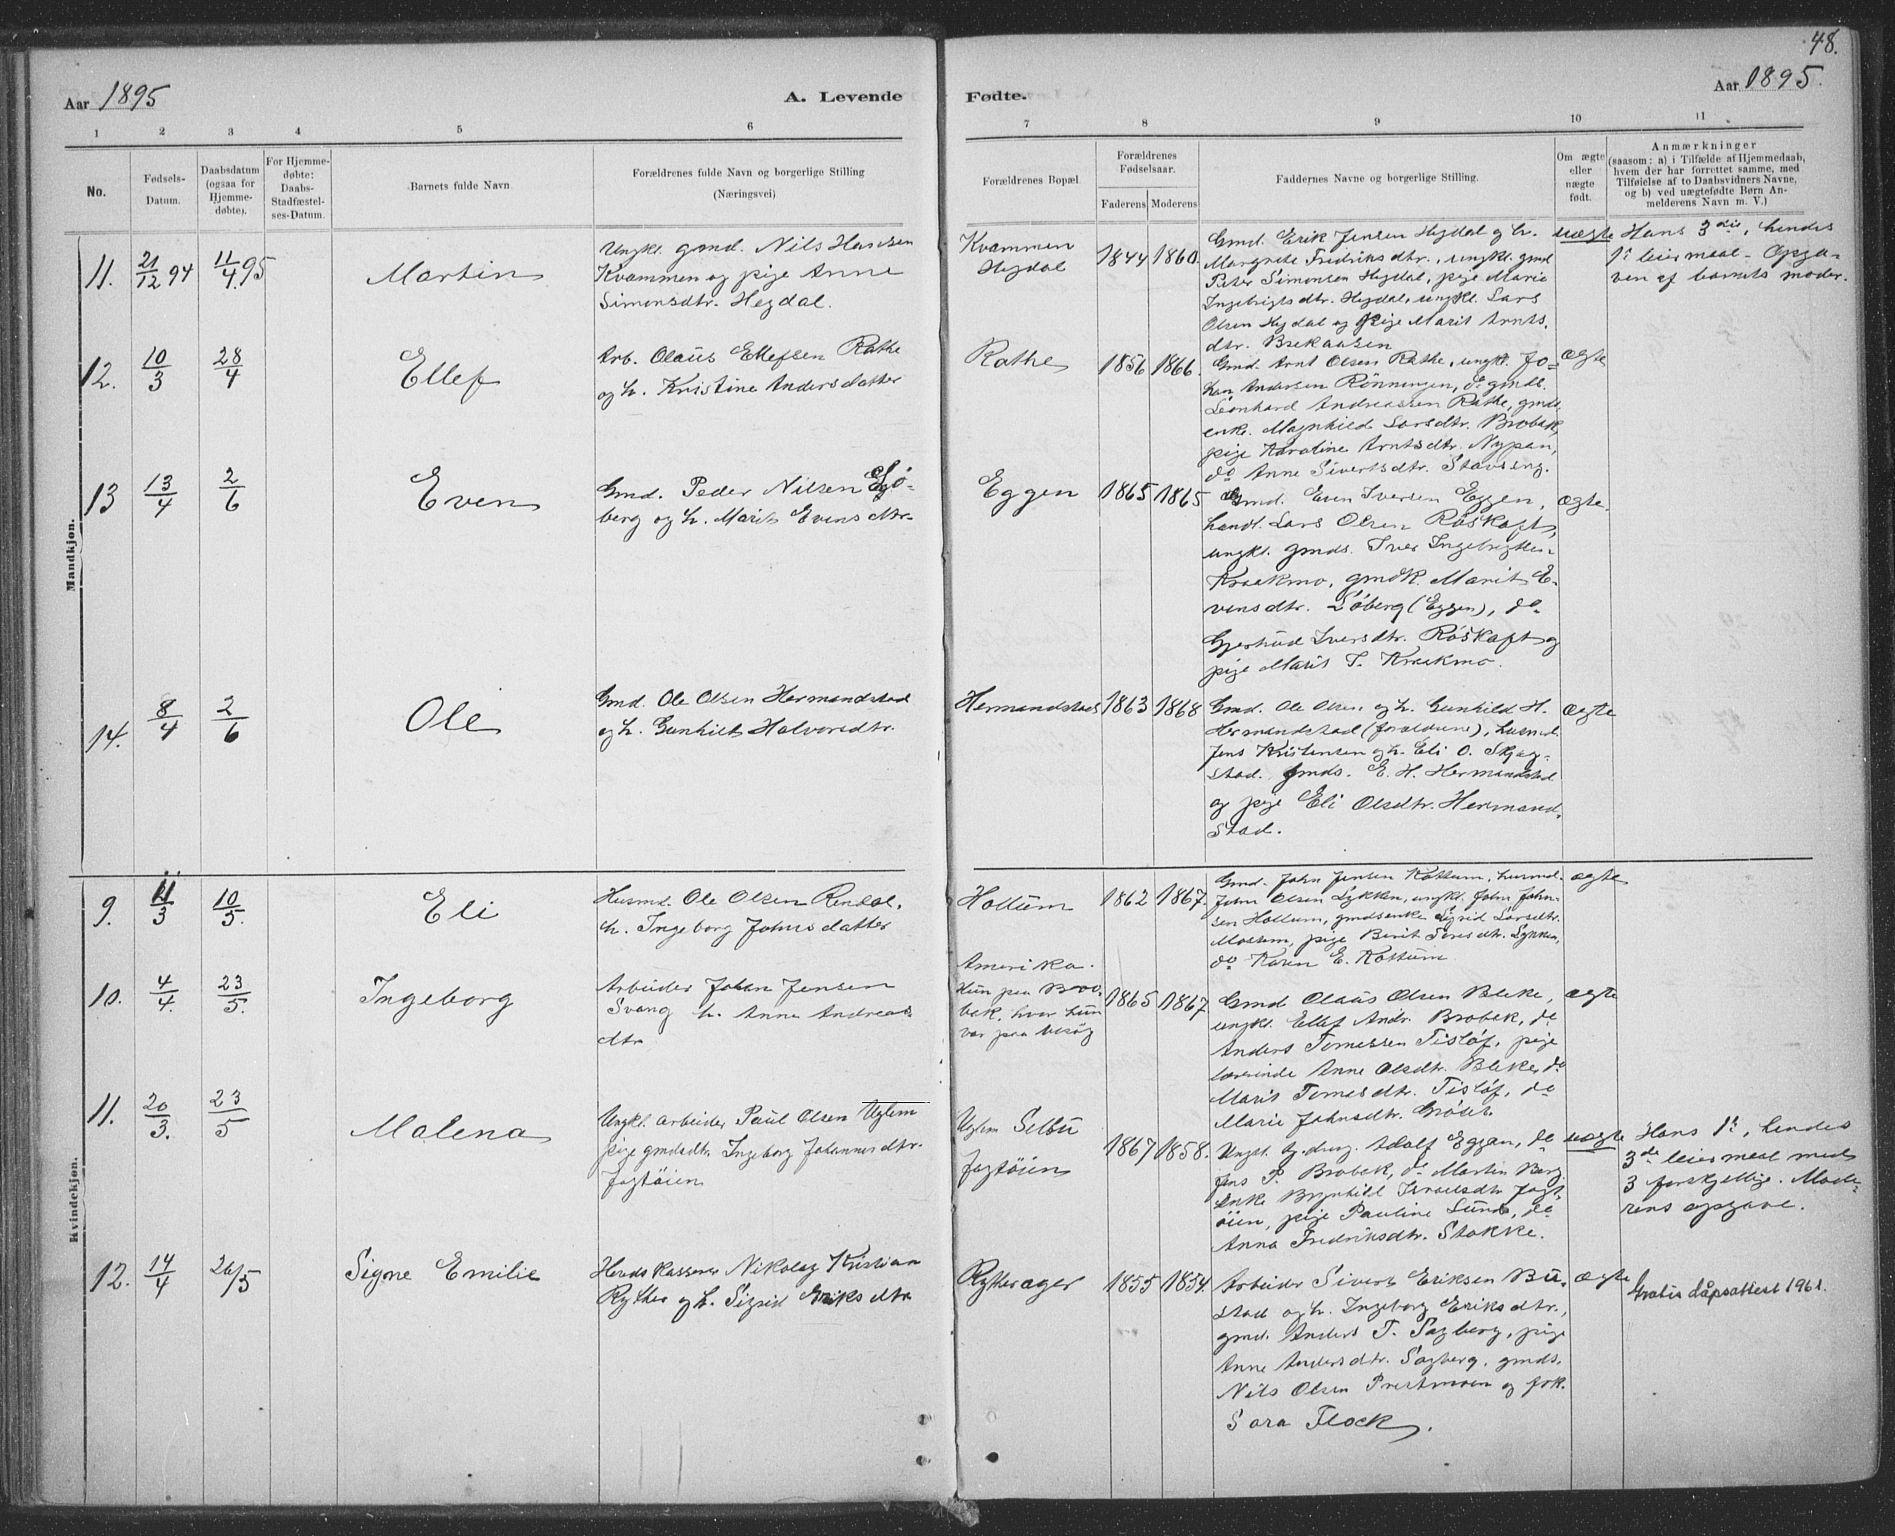 48.
Aar 1895
A. Levende
Fødte.
Aar 1895.
1 2 3 4 5 6 7 8 9 10 11
No.
Fødsels-
Datum.
Daabsdatum
(ogsaa for
Hjemme-
døbte).
For Hjemme-
døbte:
Daabs-
Stadfæstel-
ses-Datum.
Barnets fulde Navn
Forældrenes fulde Navn og borgerlige Stilling
(Næringsvei)
Forældrenes Bopæl.
Forældrenes
Fødselsaar.
Faderens Moderens
Faddernes Navne og borgerlige Stilling.
Om ægte
eller
uægte
født.
Anmærkninger
(saasom: a) i Tilfælde af Hjemmedaab,
hvem der har forrettet samme, med
Tilføielse af to Daabsvidners Navne,
og b) ved uægtefødte Børn An-
melderens Navn m. V.)
Mandkjøn.
11. 21/12 94 11/4 95 Martin
Ungkl. gmd. Nils Hansen
Kvammen og pige Anne
Simonsdtr. Hegdal.
Kvammen
Hegdal
1844 1860.
Gmd. Erik Jensen Hegdal og h.
Margrete Fredriksdtr., ungkl. gmd
Peter Simonsen Hegdal, pige Marie
Ingebrigtsdtr. Hegdal, ungkl. Lars
Olsen Hegdal og pige Marit Arnts-
dtr. Brekaasen
uægte
Hans 3die, hendes
1ste leiermaal - Opga-
ven af barnets moder.
12. 10/3 28/4 Ellef
Arb. Olaus Ellefsen Rathe
og h. Kristine Andersdatter
Rathe
1856 1866.
Gmd. Arnt Olsen Rathe, ungkl. Jo-
han Andersen Rönningen, do gmds.
Leonhard Andreassen Rathe, gmds.
enke. Magnhild Larsdtr. Brobak,
pige Karoline Arntsdtr. Nypan,
do Anne Sivertsdtr. Stavsing.
ægte
13 13/4 2/6 Even
Gmd. Peder Nilsen Sö-
berg og h. Marit Evensdtr.
Eggen
1865 1865
Gmd. Even Iversen Eggen,
handl. Lars Olsen Röskaft,
ungkl. gmds. Iver Ingebrigtsen
Kraakmo, gmdk. Marit E-
vensdtr. Söberg (Eggen), do
Gjertrud Iversdtr. Röskaft og
pige Marit I. Kraakmo.
ægte.
14. 8/4 2/6 Ole
Gmd. Ole Olsen Hermandstad
og h. Gunhild Halvorsdtr.
Hermandstad
1863 1868
Gmd. Ole Olsen og h. Gunhild H.
Hermandstad (forældrene), husmd.
Jens Kristensen og h. Eli O. Skjeg-
stad. gmds. E. H. Hermandstad
og pige Eli Olsdtr. Hermand-
stad.
ægte
Kvindekjøn.
9. 11/3 10/5. Eli
Husmd. Ole Olsen Rendal,
h. Ingeborg Johnsdatter
Hollum
1862 1867.
Gmd. John Jensen Kottum, husmd.
John Olsen Lykken, ungkl. John John-
sen Hollum, gmdsenke Sigrid Larsdtr.
Mossum, pige Berit Toresdtr. Lykken,
do Karen E. Kottum
ægte
10. 4/4. 23/5. Ingeborg
Arbeider Johan Jensen
Svang h. Anna Andreas
dtr
Amerika.
Hun paa Bro-
bak, hvor hun
var paa besög
1865 1867
Gmd Olaus Olsen Bleke,
ungkl. Ellef Andr. Brobak, do
Anders Tomessen Tislöf, pige
lærerinde Anne Olsdtr. Bleke, do
Marit Tomesdtr. Tislöf, do
Marie Johnsdtr. Gröset
ægte
11. 20/3. 23/5 Malena
Ungkl. arbeider Paul Olsen Uglem
pige gmdsdtr Ingeborg Johannesdtr.
Fagtöien
Uglem Selbu
Fagtöien
1867 1858.
Ungkl. Adolf Eggan, do
Jens P. Brobak, do Martin Berg
Enke Brynhild Israelsdtr Fagt-
öien, pige Pauline Lund, do
Anna Fredriksdtr. Stokke.
uægte
Hans 1ste, hendes
3de leiermaal med
3 forskjellige. Mode-
rens opgave.
12. 14/4 26/5 Signe Emilie
Herredskasserer Nikolay Kristian
Rytter og h. Sigrid Eriksdtr
Rytterager
1855 1854.
Arbeider Sivert Eriksen Bu-
stad og h. Ingeborg Eriksdtr.,
gmd. Anders T. Sagberg, pige
Anne Andersdtr. Sagberg, gmds.
Nils Olsen Prestmoen og frk.
Sara Flock.
ægte
Gratis dåpsattest 1961.